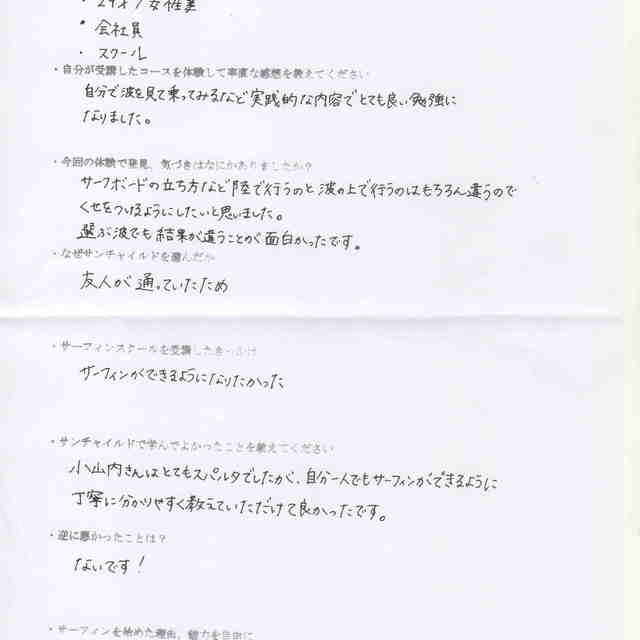 ・24才/女性
・会社員
・スクール
・自分が受講したコースを体験して率直な感想を教えてください
自分で波を見て乗ってみるなど実践的な内容でとても良い勉強に
なりました。
・今回の体験で発見、気づきはなにかありましたか?
サーフボードの立ち方など陸で行うのと波の上で行うのはもちろん違うので
くせをつけるようにしたいと思いました。
選ぶ波でも結果が違うことが面白かったです。
・なぜサンチャイルドを選んだか
友人が通っていたため
・サーフィンスクールを受講したきっかけ
サーフィンができるようになりたかった
・サンチャイルドで学んでよかったことを教えてください
小山内さんはとてもスパルタでしたが、自分一人でもサーフィンができるように
丁寧に分かりやすく教えていただけて良かったです。
・逆に悪かったことは?
ないです!
・サーフィンを始めた理由、魅力を自由に